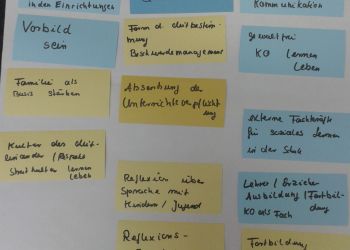 in den Einrichtungen
Kommunikation
Vorbild
sein
Form d. Mitbestim-
mung
Beschwerdemanagement
gewaltfrei
KO lernen
Leben
Familie als
Basis stärken
Absenkung der
Unterrichtsverpflicht
ung
externe Fachkräfte
für soziales Lernen
in der Schule
Kultur des Mit-
einander / Respekt
Streitkultur lernen
leben
Reflexion über
Sprache mit
Kindern / Jugend
Lehrer / Erzieher
Ausbildung / Fortbil-
dung
KO als Fach
Reflexions-
Fortbildung